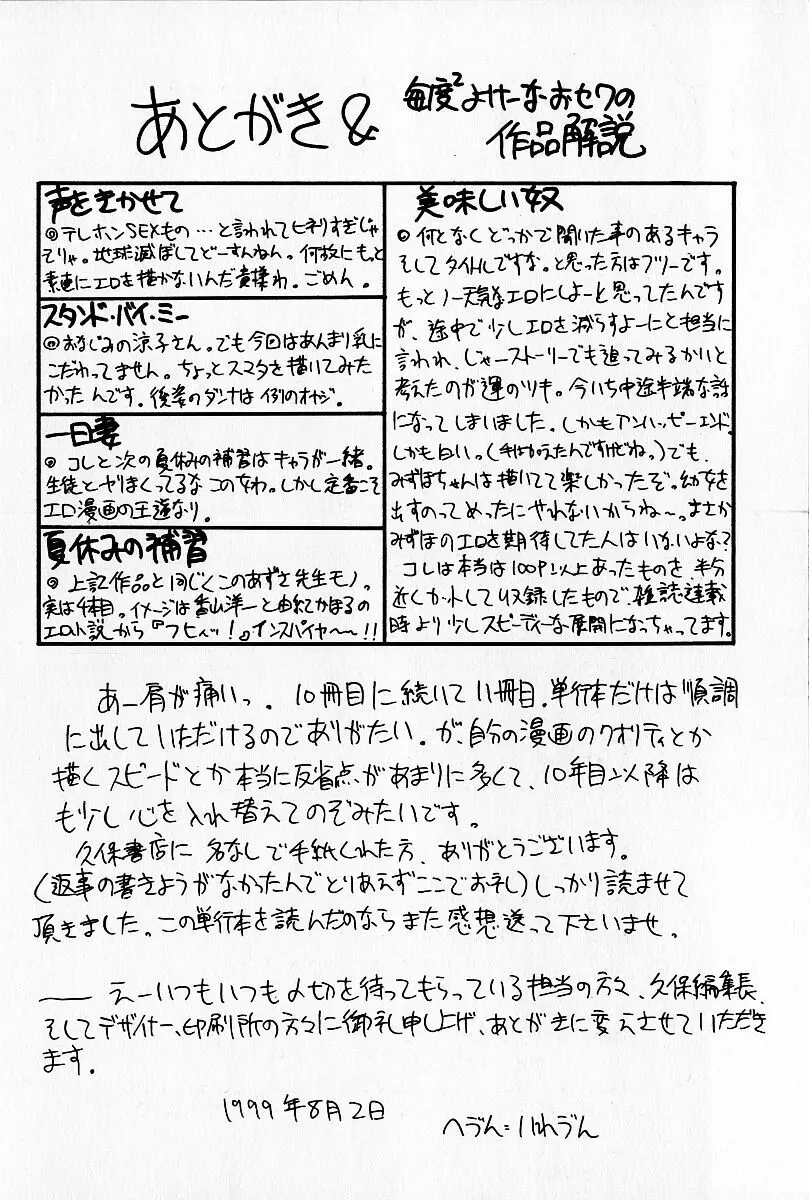 あとがき&
毎度²よけーなおセワの
作品解説
声をきかせて
◎テレホンSEXもの…と言われてヒネリすぎじゃ
そりゃ。地球滅ぼしてどーすんねん。何故にもっと
素直にエロを描かないんだ貴様わ。ごめん。
スタンド・バイ・ミー
◎おなじみの涼子さん。でも今回はあんまり乳に
こだわってません。ちょっとスマタを描いてみた
かったんです。後姿のダンナは例のオヤジ。
一日妻
◎コレと次の夏休みの補習はキャラが一緒。
生徒とヤりまくってるなこの女わ。しかし定番こそ
エロ漫画の王道なり。
夏休みの補習
◎上記作品と同じくこのあずさ先生モノ。
実は4本目。イメージは香山洋一と由紀かほるの
エロ小説から『フヒィッ!』インスパイヤ〜〜!!
美味しい奴
◎何となくどっかで聞いた事のあるキャラ
そしてタイトルですな。と思った方はフツーです。
もっとノー天気なエロにしよーと思ってたんです
が、途中で少しエロを減らすよーにと担当に
言われ、じゃーストーリーでも追ってみるかいと
考えたのが運のツキ。今いち中途半端な話
になってしまいました。しかもアンハッピーエンド。
しかも白い。(手は加えたんですけどね。)でも、
みずほちゃんは描いてて楽しかったぞ。幼女を
出すのってめったにやれないからね〜。まさか
みずほのエロを期待してた人はいないよな?
コレは本当は100P以上あったものを半分
近くカットして収録したもので、雑誌連載
時より少しスピーディーな展開になっちゃってます。
あー肩が痛いっ。10冊目に続いて11冊目。単行本だけは順調
に出していただけるのでありがたい。が、自分の漫画のクオリティとか
描くスピードとか本当に反省点があまりに多くて、10年目以降は
も少し心を入れ替えてのぞみたいです。
久保書店に名なしで手紙くれた方、ありがとうございます。
(返事の書きようがなかったんでとりあえずここでお礼)しっかり読ませて
頂きました。この単行本を読んだのならまた感想送って下さいませ。
―― えーいつもいつも〆切を待ってもらっている担当の方々、久保編集長、
そしてデザイナー、印刷所の方々に御礼申し上げ、あとがきに変えさせていただき
ます。
1999年8月2日
へヴん:11れヴん